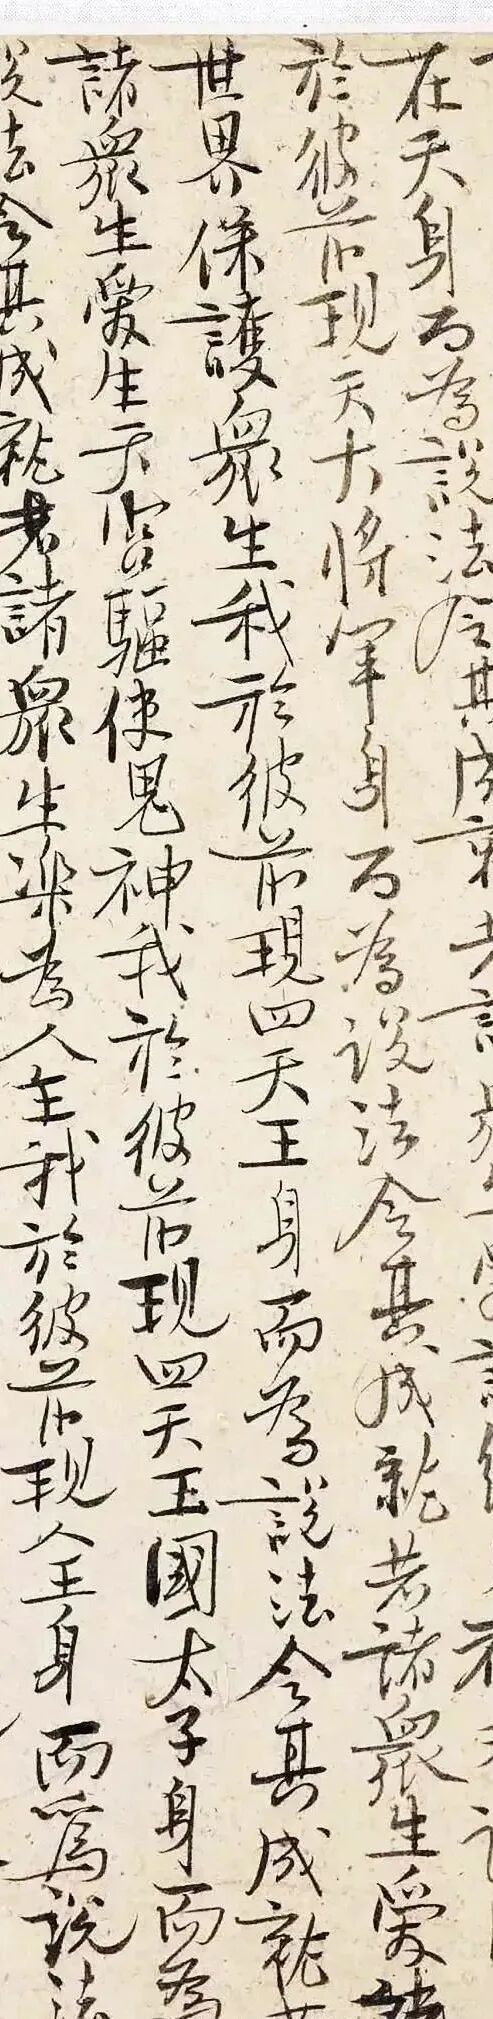 在天身而為說法令其成就若諸
於彼前現天大將軍身而為說法令其成就若諸衆生愛
世界保護衆生我於彼前現四天王身而為說法令其成就
諸衆生愛生天宮驅使鬼神我於彼前現四天王國太子身而為
說法令其成就若諸衆生樂為人王我於彼前現人王身而為說法